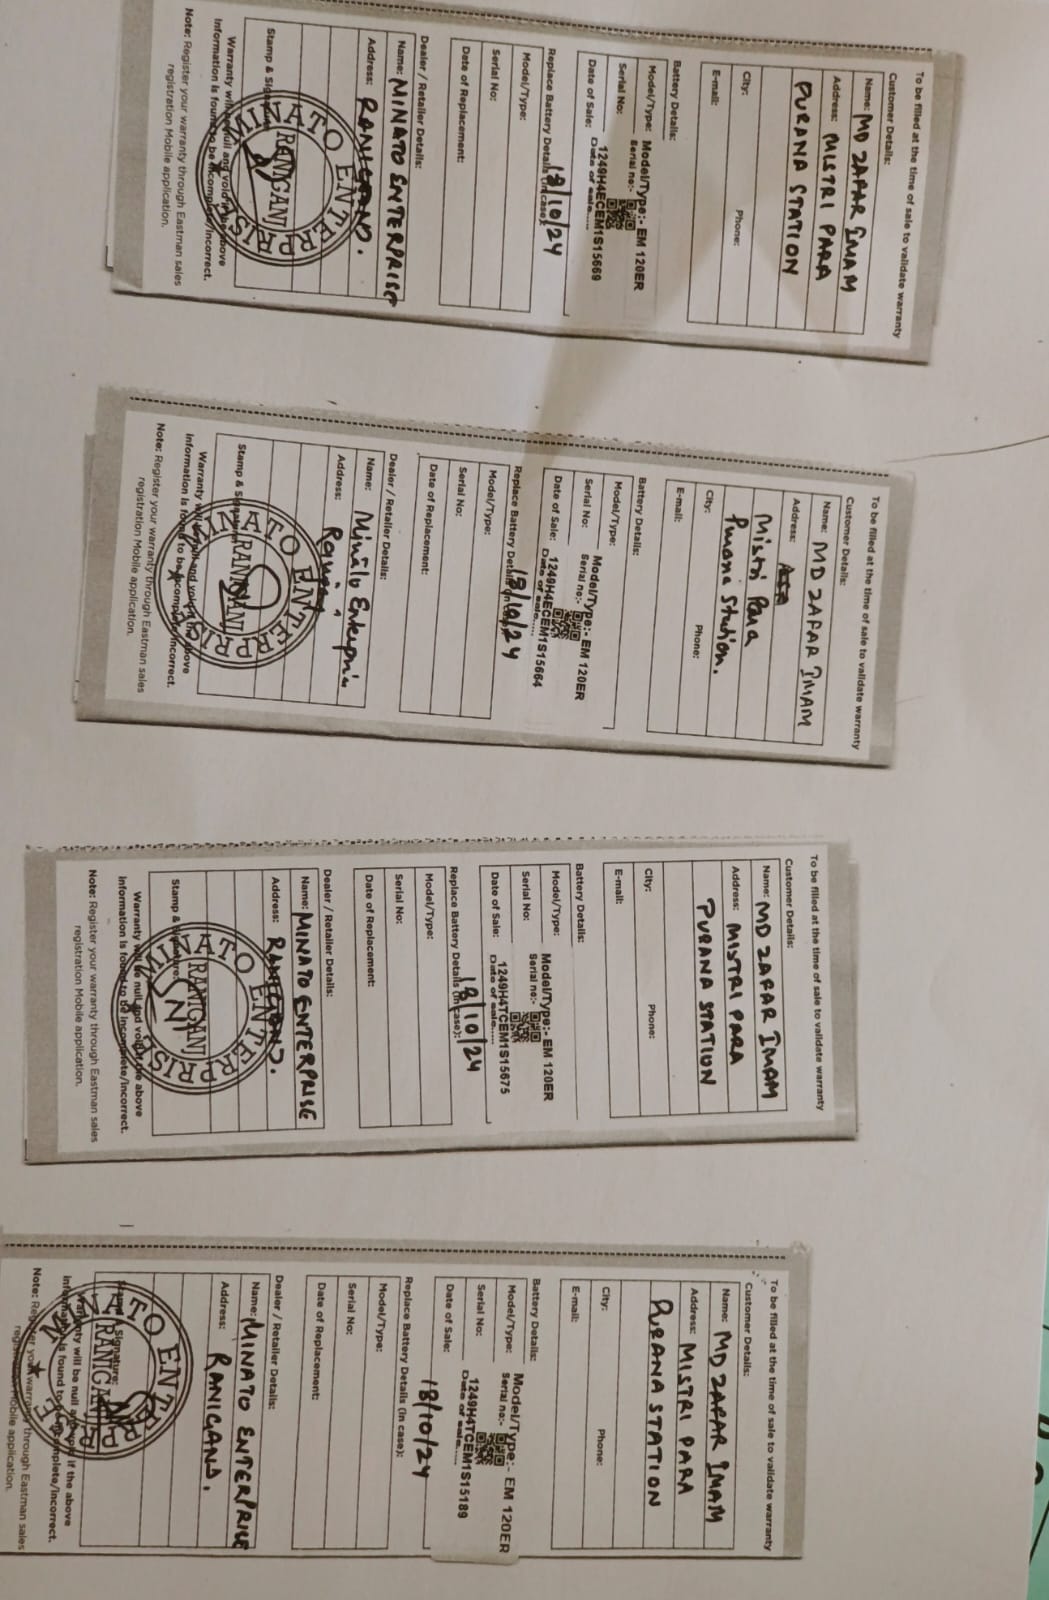 To be filled at the time of sale to validate warranty
Customer Details:
Name: MD ZAFAR IMAM
Address: MISTRI PARA
PURANA STATION
City: Phone:
E-mail:
Battery Details:
Model/Type: Model/Type:- EM 120ER
Serial no:-
Serial No:
1249H4ECEM1S15669
Date of Sale: Date of sale.....
18/10/24
Replace Battery Details (in case):
Model/Type:
Serial No:
Date of Replacement:
Dealer / Retailer Details:
Name: MINATO ENTERPRISE
Address: RANIGANJ.
MINATO ENTERPRISE
RANIGANJ
Stamp & Signature:
Warranty will be null and void if the above
information is found to be incomplete/incorrect.
Note: Register your warranty through Eastman sales
registration Mobile application.
To be filled at the time of sale to validate warranty
Customer Details:
Name: MD ZAFAR IMAM
Address:
Mistri Para
Purana Station.
City: Phone:
E-mail:
Battery Details:
Model/Type:
Model/Type:- EM 120ER
Serial No: Serial no:-
Date of Sale: 1249H4ECEM1S15664
Date of sale.....
18/10/24
Replace Battery Details (in case):
Model/Type:
Serial No:
Date of Replacement:
Dealer / Retailer Details:
Name: Minato Enterpri
Address:
MINATO ENTERPRISE
RANIGANJ
Stamp & Signature:
Warranty will be null and void if the above
information is found to be incomplete/incorrect.
Note: Register your warranty through Eastman sales
registration Mobile application.
To be filled at the time of sale to validate warranty
Customer Details:
Name: MD ZAFAR IMAM
Address: MISTRI PARA
PURANA STATION
City: Phone:
E-mail:
Battery Details:
Model/Type:
Model/Type:- EM 120ER
Serial No: Serial no:-
Date of Sale: 1249H4TCEM1S15675
Date of sale.....
18/10/24
Replace Battery Details (in case):
Model/Type:
Serial No:
Date of Replacement:
Dealer / Retailer Details:
Name: MINATO ENTERPRISE
Address: RANIGANJ.
MINATO ENTERPRISE
RANIGANJ
Stamp & Signature:
Warranty will be null and void if the above
information is found to be incomplete/incorrect.
Note: Register your warranty through Eastman sales
registration Mobile application.
To be filled at the time of sale to validate warranty
Customer Details:
Name: MD ZAFAR IMAM
Address: MISTRI PARA
PURANA STATION
City: Phone:
E-mail:
Battery Details:
Model/Type: Model/Type:- EM 120ER
Serial no:-
Serial No: 1249H4TCEM1S15189
Date of sale.....
Date of Sale:
18/10/24
Replace Battery Details (in case):
Model/Type:
Serial No:
Date of Replacement:
Dealer / Retailer Details:
Name: MINATO ENTERPRISE
Address: RANIGANJ.
MINATO ENTERPRISE
Stamp & Signature:
RANIGANJ
Warranty will be null and void if the above
information is found to be incomplete/incorrect.
Note: Register your warranty through Eastman sales
registration Mobile application.